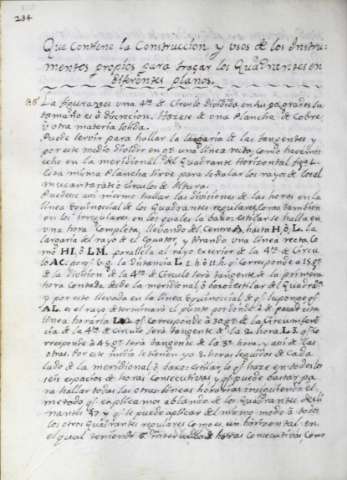 234
Que Contiene la Construccion y usos de los Instru-
mentos propios para trazar los Quadrantes en
diferentes planos.
La figura es una 4ª de Circulo dividido en 90 grados su
tamaño es à discrecion. Hazese de una Plancha de Cobre,
ù otra materia solida.
Puede servir para hallar la largaria de las tangentes y
por este medio dividir en 90 una linea recta, como havemos
echo en la meridional del Quadrante Horizontal fig.
Esta misma Plancha sirve para señalar los rayos de los
mucantaràtes ò Circulos de Altura.
Puedense asi mismo hallar las divisiones de las horas en la
linea Equinoccial de los Quadrantes regulares, como tambien
en los irregulares en los quales la basis estilar se halla en
una hora Completa, llevando del Centro A, hasta H, ò L, la
largaria del rayo de el Equator, y tirando una linea recta, Co
mo HI, ò LM, parallela al rayo exterior de la 4ª de Circu
lo AC, por q.e v.g. la distancia L 1 ò H q.e Corresponde a 15 gr.s
de la division de la 4ª de Circulo serà tangente de la primera
hora Contada desde la meridional ò basis estilar del Quadrante
y por esto llevada en la linea Equinoccial de q.e supongo q.e
AL, es el rayo determinarà el punto por donde à de pasar esta
linea horaria. L 2 q.e Corresponde à 30 gr.s de la Circunferen
cia de la 4ª de Circulo serà tangente de la 2 hora. L 3 q.e Co
rresponde à 45 gr.s serà tangente de la 3ª hora, y asi de las
otras. Por este medio se tienen ya 5 horas seguidas de Cada
lado de la meridional ò basis estilar, lo q.e haze en todo los
seis espacios de horas Consecutivas y q.e puede bastar pa
ra hallar todas las otras lineas horarias siguiendo el
metodo q.e explicamos ablando de los Quadrantes declin
nantes 47 y q.e se puede aplicar del mismo modo à todos
los otros Quadrantes regulares Como es un horizontal en
el qual teniendo 6 intervallos de horas Consecutivas, Como